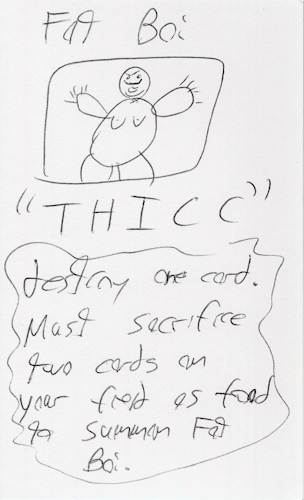 Fat Boi
"THICC"
destroy one card.
Must sacrifice
two cards on
your field as food
to summon Fat
Boi.